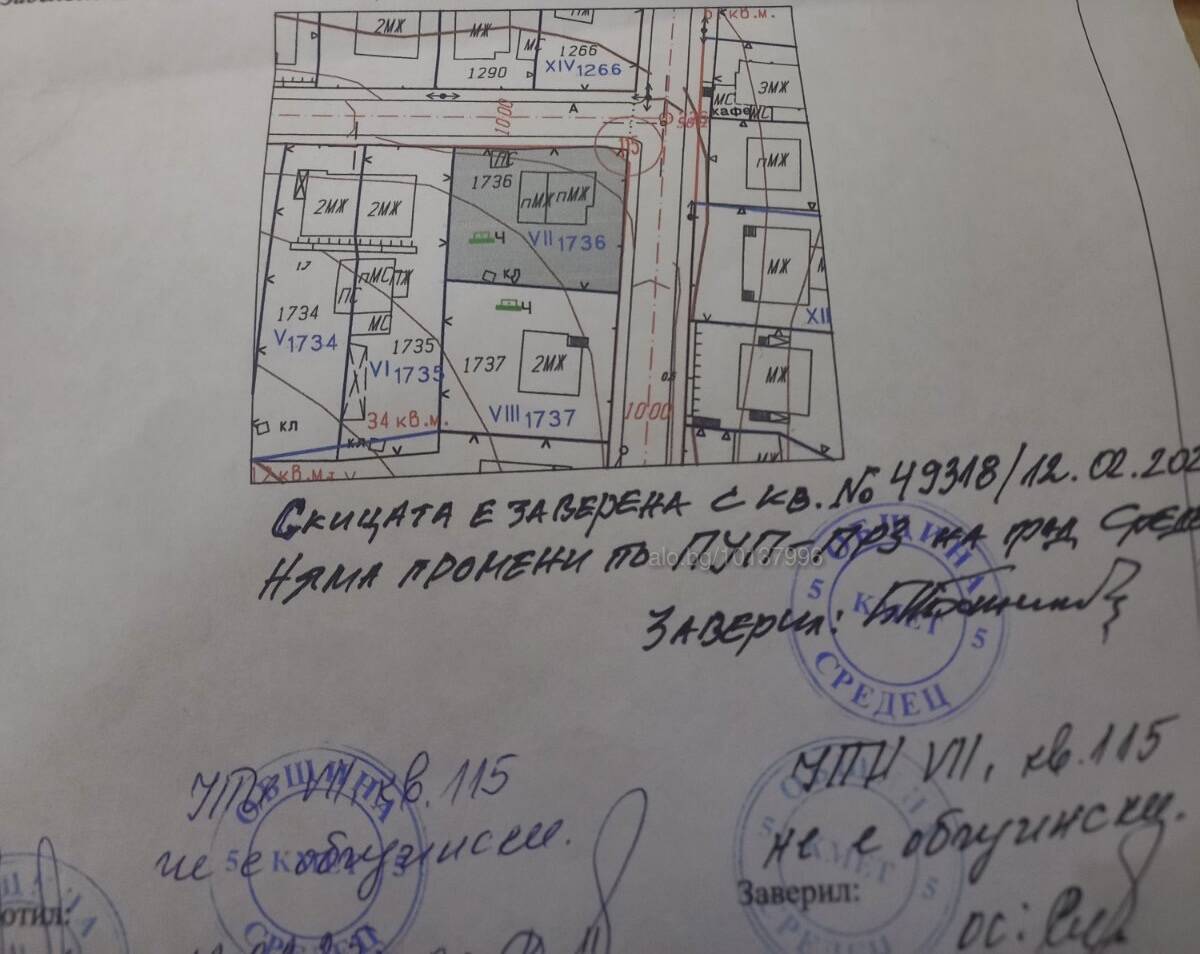 2МЖ
МЖ
МС
1290
1266
XIV 1266
кв.м.
3МЖ
МС
кафе
МС
1000
А
115
пМЖ
ПС
1736
2МЖ
2МЖ
пМЖ
пМЖ
Ч
VII 1736
кл
МЖ
пМС
ПС
МС
1734
V 1734
1735
VI 1735
Ч
1737
2МЖ
VIII 1737
XII
МЖ
1000
34 кв.м.
кл
кл
МЖ
СКИЦАТА Е ЗАВЕРЕНА С КВ. № 49318/12.02.202
НЯМА ПРОМЕНИ ПО ПУП-ПРЗ НА ГРАД СРЕД
alo.bg/10137996
ЗАВЕРИЛ:
ОБЩИНА
5 КМЕТ 5
СРЕДЕЦ
УПИ VII, кв. 115
не е общински.
ОБЩИНА
5 КМЕТ 5
СРЕДЕЦ
УПИ VII, кв. 115
не е общински.
КМЕТ 5
СРЕДЕЦ
Заверил:
ос:
отил: